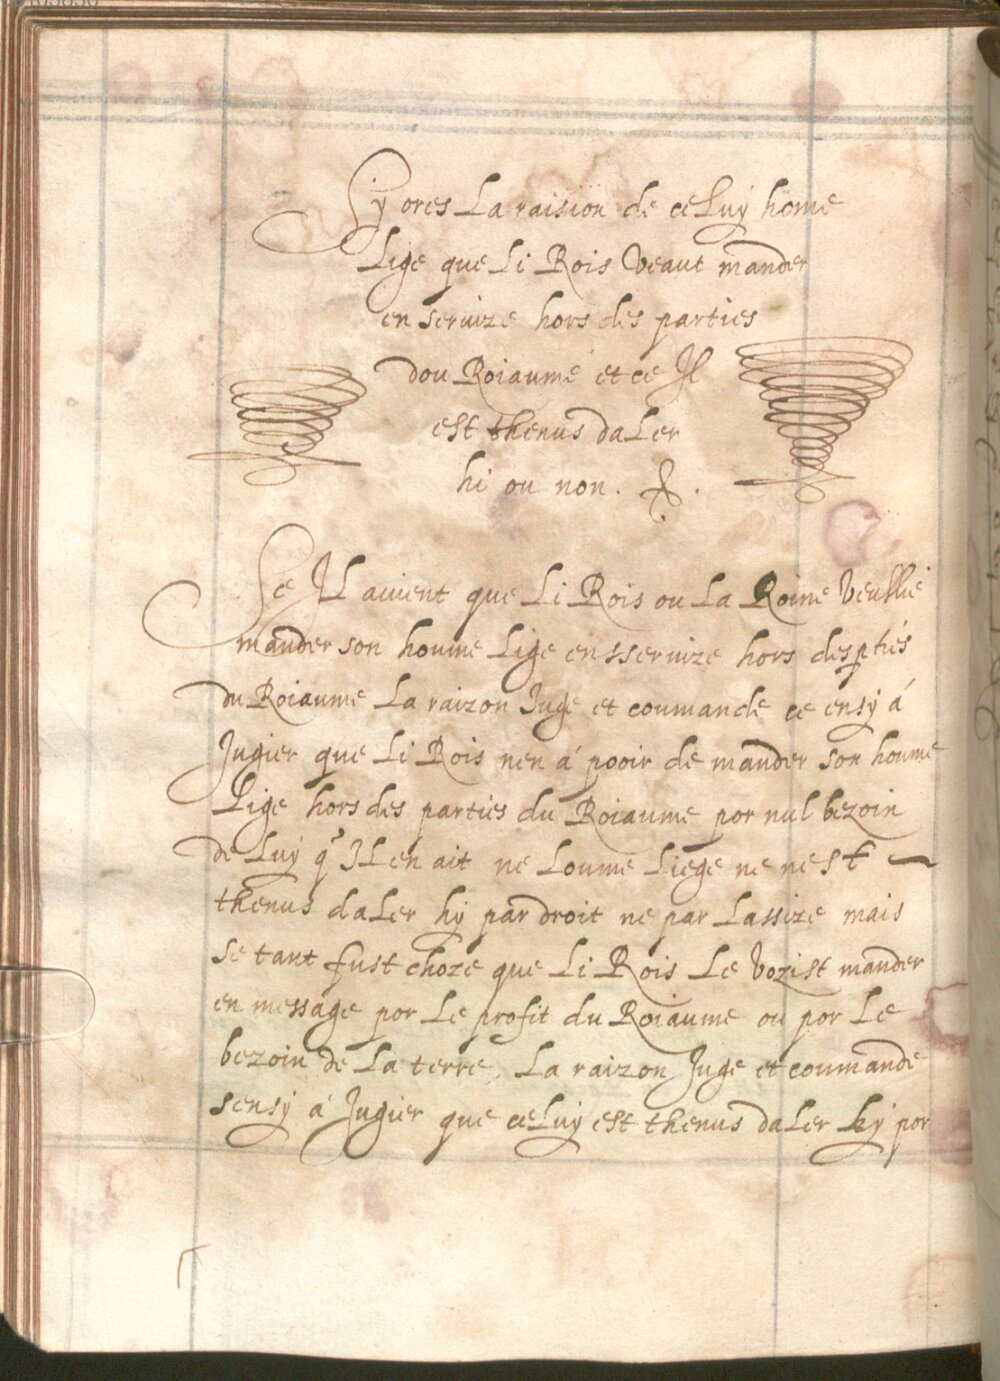 Sÿ ores La raision de ceLuÿ home
Lige que Li Rois Veaut mander
en seruize hors des parties
dou Roiaume et ce Jl
est thenus daLer
hi ou non.
Se JL auient que Li Rois ou La Roine Veullie
mander son houme Lige en sseruize hors des pties
du Roiaume La raizon Juge et coumande ce ensÿ á
Jugier que Li Rois nen á pooir de mander son houme
Lige hors des parties du Roiaume por nul bezoin
de Luÿ q' JL en ait ne Loume Liege ne nest
thenus daLer hÿ par droit ne par Lassize mais
se tant fust choze que Li Rois Le Vozist mander
en message por Le profit du Roiaume ou por Le
bezoin de La terre, La raizon Juge et coumande
sensÿ á Jugier que ceLuÿ est thenus daLer hÿ por